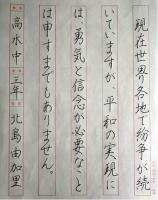 現在世界各地で紛争が続
いていますが、平和の実現に
は、勇気と信念が必要なこと
は申すまでもありません。
高水中 三年 北島由加里